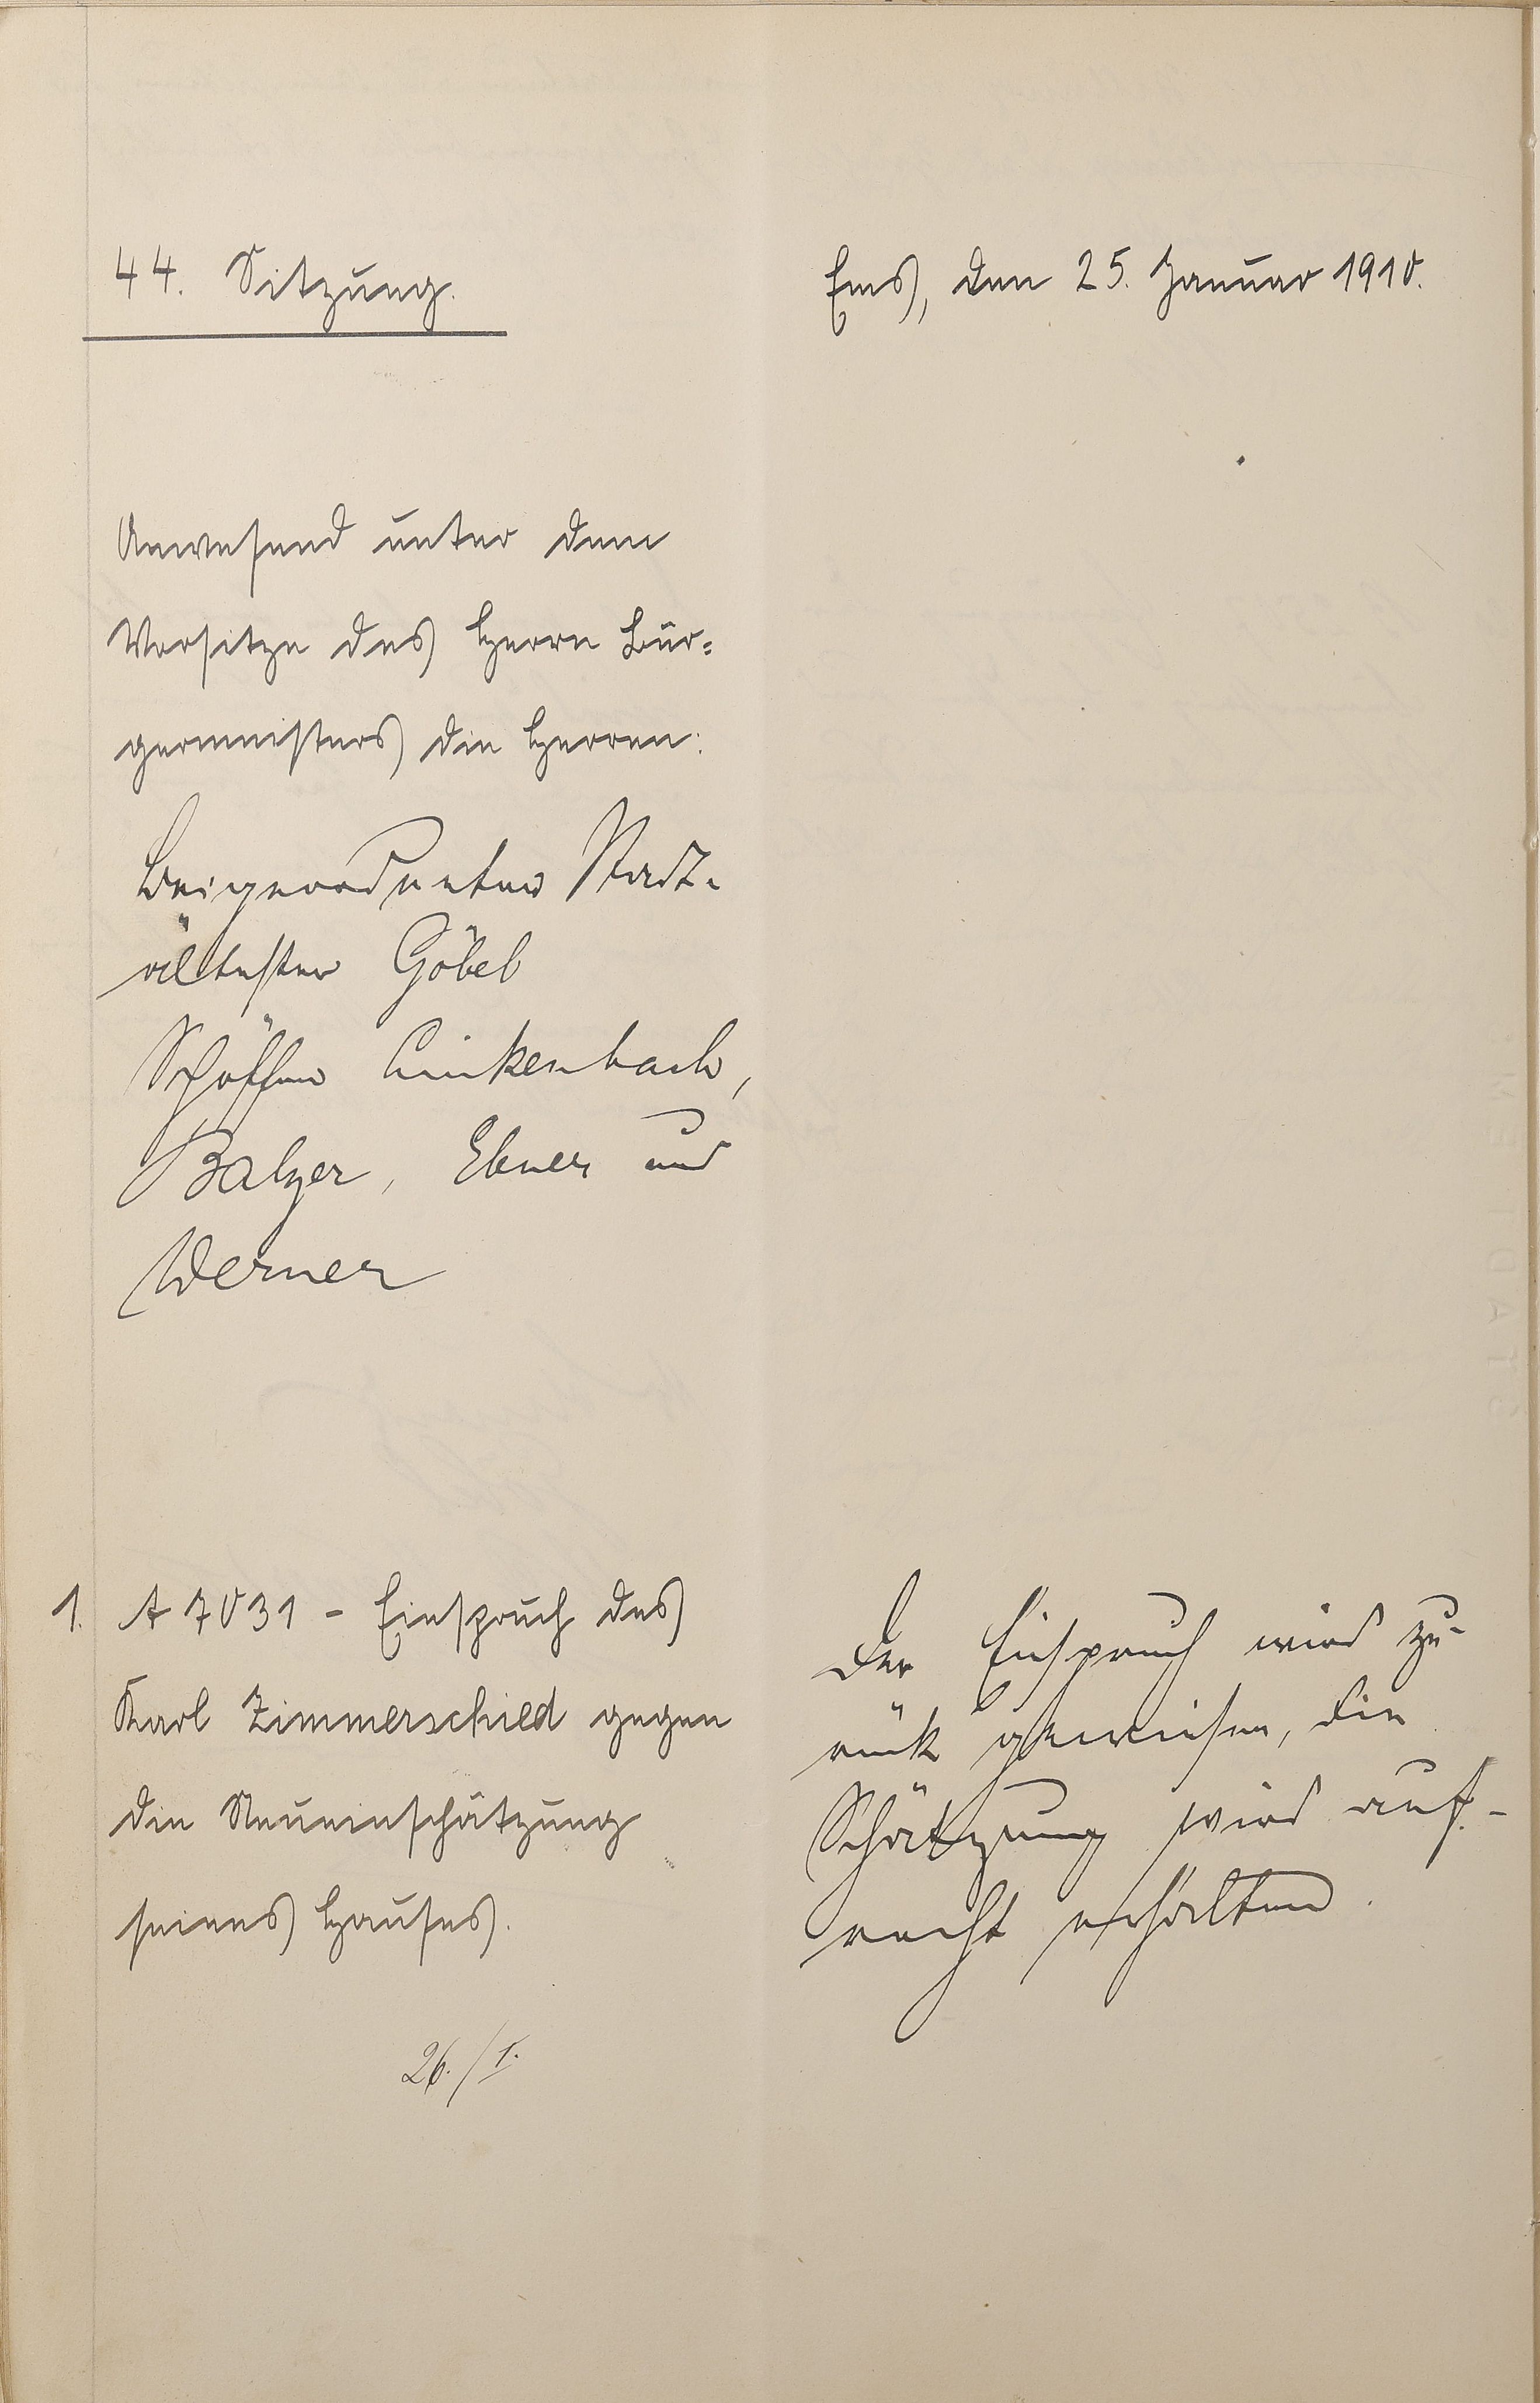 44. Sitzung.
Ems, den 25. Januar 1910.
Anwesend unter dem
Vorsitze des Herrn Bür-
germeisters die Herren:
Beigeordneter Stadt-
ältester Göbel
Schöffen Linkenbach,
Balzer, Ebner und
Werner
1. A 7031 - Einspruch des
Karl Zimmerschied gegen
die Neueinschätzung
seines Hauses.
26./I.
Der Einspruch wird zu-
rück gewiesen, die
Schätzung wird auf-
recht erhalten.